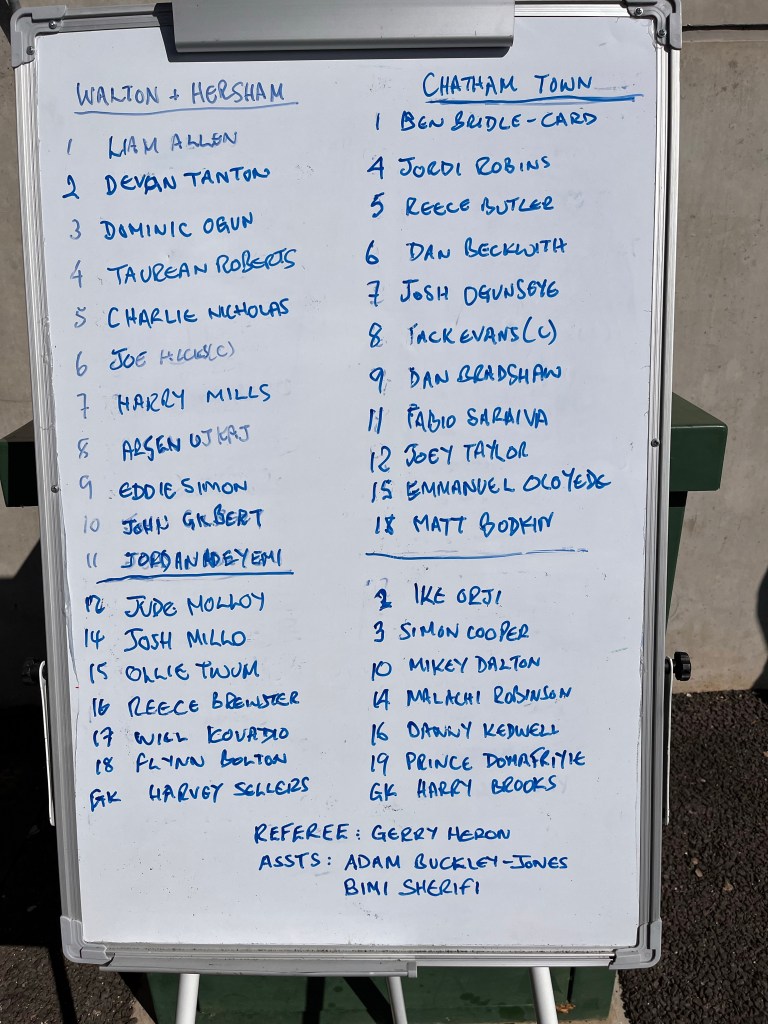 WALTON + HERSHAM
1 LIAM ALLEN
2 DEVAN TANTON
3 DOMINIC OGUN
4 TAUREAN ROBERTS
5 CHARLIE NICHOLAS
6 JOE HICKS(C)
7 HARRY MILLS
8 ARSEN UJKAJ
9 EDDIE SIMON
10 JOHN GILBERT
11 JORDAN ADEYEMI
12 JUDE MOLLOY
14 JOSH MILLO
15 OLLIE TWUM
16 REECE BREWSTER
17 WILL KOUADIO
18 FLYNN BOLTON
GK HARVEY SELLERS
CHATHAM TOWN
1 BEN BRIDLE-CARD
4 JORDI ROBINS
5 REECE BUTLER
6 DAN BECKWITH
7 JOSH OGUNSEYE
8 JACK EVANS(C)
9 DAN BRADSHAW
11 FABIO SARAIVA
12 JOEY TAYLOR
15 EMMANUEL OLOYEDE
18 MATT BODKIN
2 IKE ORJI
3 SIMON COOPER
10 MIKEY DALTON
14 MALACHI ROBINSON
16 DANNY KEDWELL
19 PRINCE DOMAFRIYIE
GK HARRY BROOKS
REFEREE: GERRY HERON
ASSTS: ADAM BUCKLEY-JONES
BIMI SHERIFI